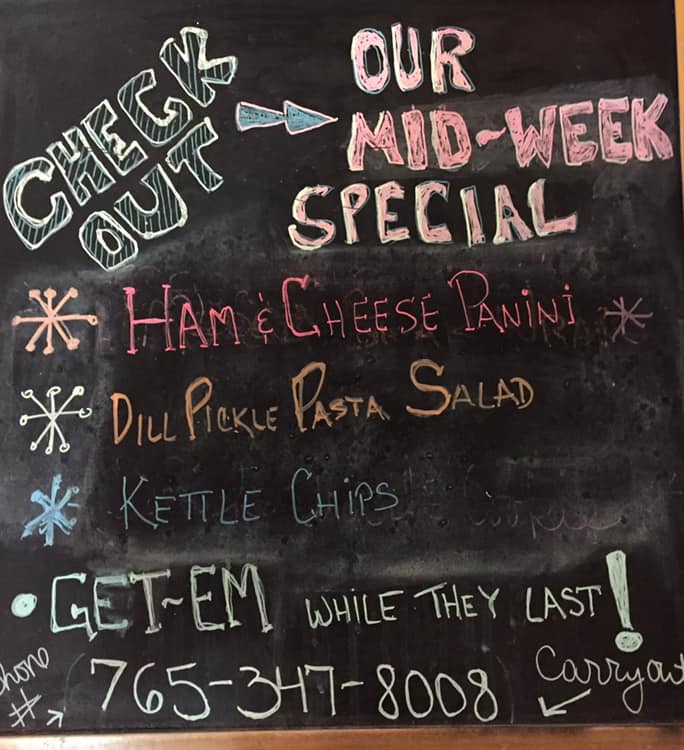 CHECK OUT
OUR
MID~WEEK
SPECIAL
HAM & CHEESE PANINI
DILL PICKLE PASTA SALAD
KETTLE CHIPS
• GET~EM WHILE THEY LAST!
phone
#
(765-347-8008)
Carryout